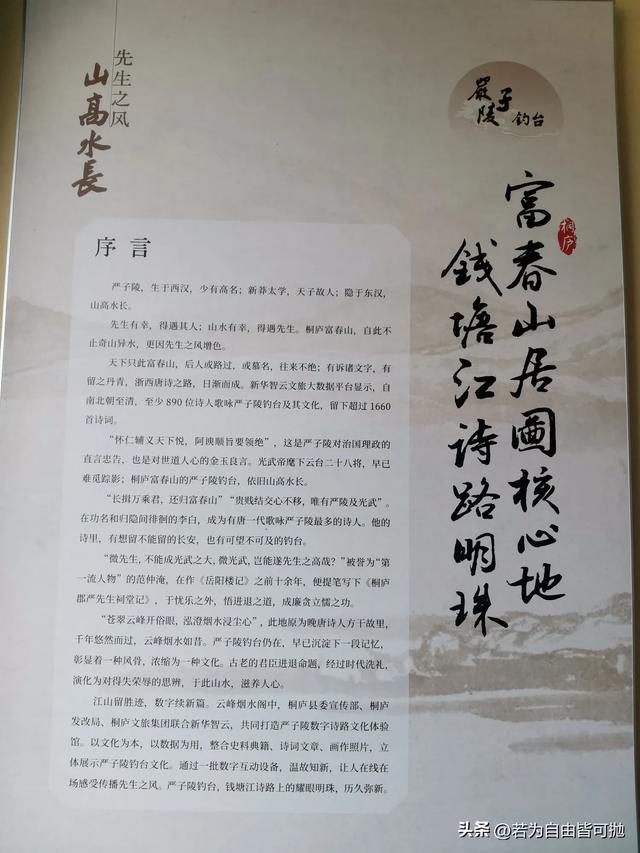 先生之风
山高水長
嚴子陵
钓台
桐庐
富春山居圖核心地
钱塘江詩路明珠
序言
严子陵，生于西汉，少有高名；新莽太学，天子故人；隐于东汉，
山高水长。
先生有幸，得遇其人；山水有幸，得遇先生。桐庐富春山，自此不
止奇山异水，更因先生之风增色。
天下只此富春山，后人或路过，或慕名，往来不绝；有诉诸文字，有
留之丹青，浙西唐诗之路，日渐而成。新华智云文旅大数据平台显示，自
南北朝至清，至少 890 位诗人歌咏严子陵钓台及其文化，留下超过 1660
首诗词。
“怀仁辅义天下悦，阿谀顺旨要领绝”，这是严子陵对治国理政的
直言忠告，也是对世道人心的金玉良言。光武帝麾下云台二十八将，早已
难觅踪影；桐庐富春山的严子陵钓台，依旧山高水长。
“长揖万乘君，还归富春山”“贵贱结交心不移，唯有严陵及光武”。
在功名和归隐间徘徊的李白，成为有唐一代歌咏严子陵最多的诗人。他的
诗里，有想留不能留的长安，也有可望不可及的钓台。
“微先生，不能成光武之大，微光武，岂能遂先生之高哉？”被誉为“第
一流人物”的范仲淹，在作《岳阳楼记》之前十余年，便提笔写下《桐庐
郡严先生祠堂记》，于忧乐之外，悟进退之道，成廉贪立懦之功。
“苍翠云峰开俗眼，泓澄烟水浸尘心”，此地原为晚唐诗人方干故里，
千年悠然而过，云峰烟水如昔。严子陵钓台仍在，早已沉淀下一段记忆，
彰显着一种风骨，浓缩为一种文化。古老的君臣进退命题，经过时代洗礼，
演化为对得失荣辱的思辨，于此山水，滋养人心。
江山留胜迹，数字续新篇。云峰烟水阁中，桐庐县委宣传部、桐庐
发改局、桐庐文旅集团联合新华智云，共同打造严子陵数字诗路文化体验
馆。以文化为本，以数据为用，整合史料典籍、诗词文章、画作照片，立
体展示严子陵钓台文化。通过一批数字互动设备，温故知新，让人在线在
场感受传播先生之风。严子陵钓台，钱塘江诗路上的耀眼明珠，历久弥新。
头条 @若为自由皆可抛